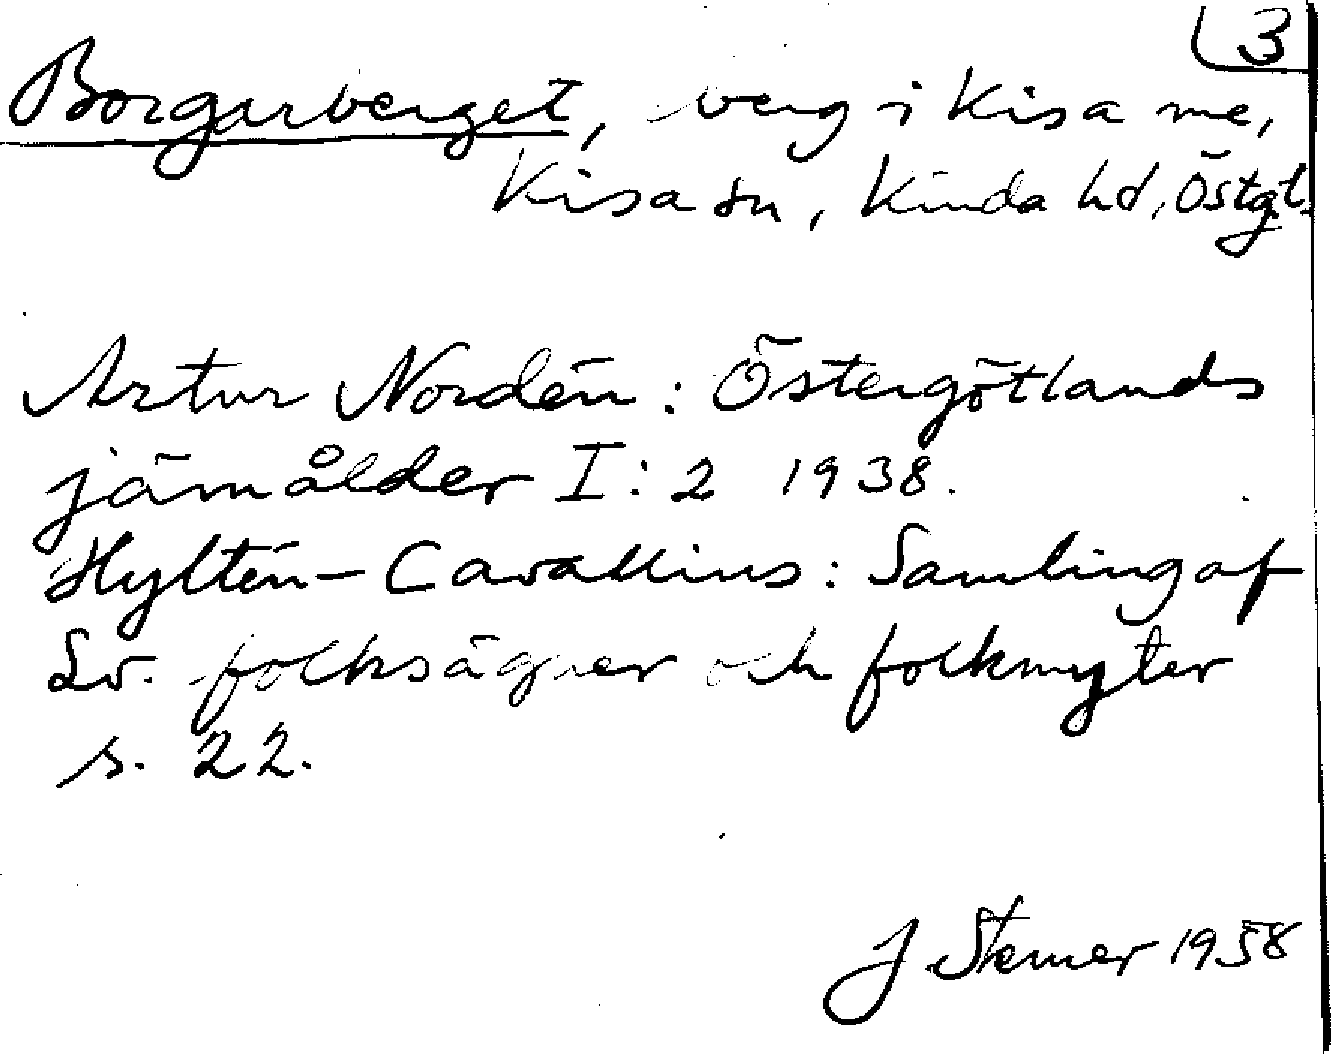 3
Borgarberget, berg i Kisa me,
Kisa sn, Kinda hd, Östgtl.
Artur Nordén: Östergötlands
järnålder I:2 1938.
Hyltén-Cavallius: Samling af
Sv. folksägner och folkmyter
s. 22.
J Sterner 1958